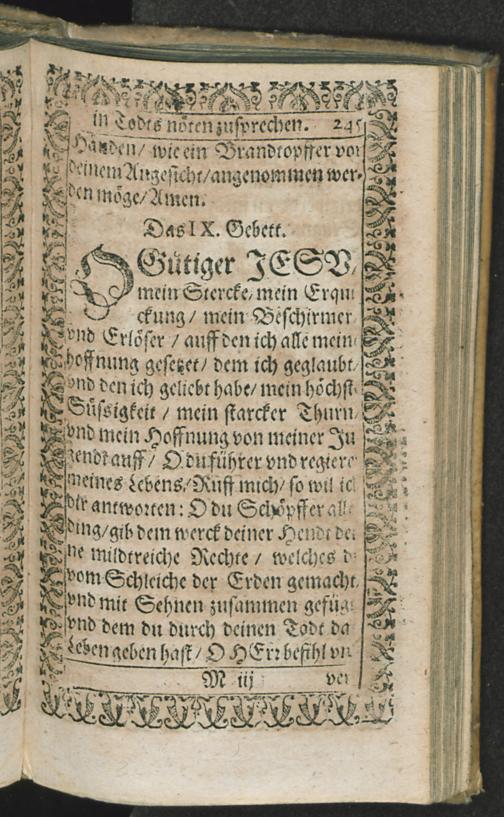 in Todts nöten zusprechen. 245
Händen/ wie ein Brandtopffer vor
deinem Angesicht/angenommen wer-
den möge/ Amen.
Das IX. Gebett.
O Gütiger JESV,
mein Stercke/ mein Erqui
ckung / mein Beschirmer
vnd Erlöser / auff den ich alle mein
hoffnung gesetzet/ dem ich geglaubt/
vnd den ich geliebt habe/ mein höchst
Süssigkeit / mein starcker Thurn
vnd mein Hoffnung von meiner Ju
gendt auff / O du führer vnd regierer
meines Lebens/ Ruff mich/ so wil ich
dir antworten: O du Schöpffer alle
ding/gib dem werck deiner Hendt dei
ne mildtreiche Rechte / welches d
vom Schleiche der Erden gemacht/
vnd mit Sehnen zusammen gefüg
vnd dem du durch deinen Todt da
Leben geben hast/ O HErr befihl vn
M iij ver